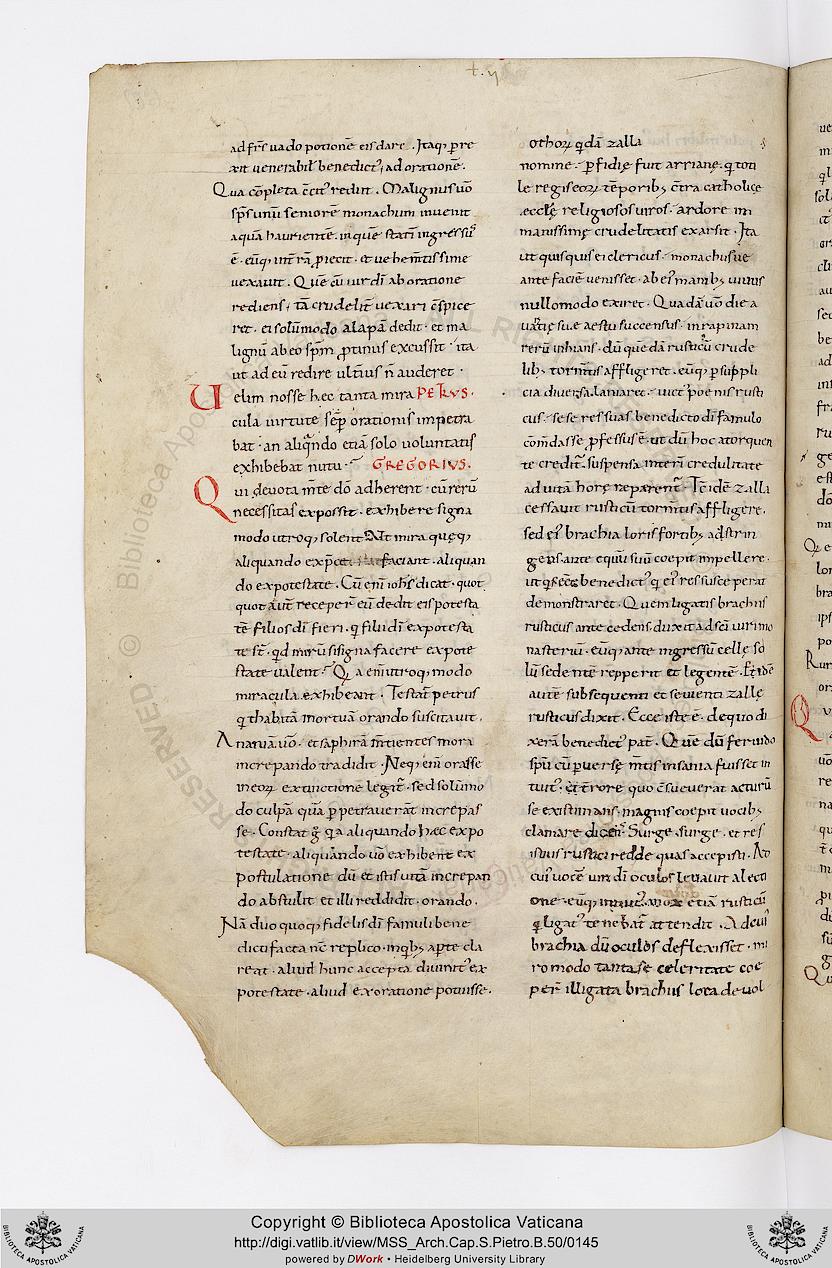 t. y
ad fr̅s uado potionē eis dare. Itaq; p̱re
xit uenerabil̅ benedict᾽ ad orationē.
Qua cōpleta c̅cit᾽ rediit. Malignus uo̅
sp̅s unū seniorē monachum inuenit
aquā haurientē. in quē statī ingressu᾽
ē. eūq; int̅ra p̱iecit. et uehem̅tissime
uexauit. Quē cū uir di̅ ab oratione
rediens. tā crudelit̅ uexari c̅spice
ret. ei solūmodo alapā dedit. et ma
lignū ab eo sp̅m p̱tinus excussit. ita
ut ad eū redire ult̅ius n̅ auderet.
Uelim nosse hęc tanta mira PETRVS.
cula uirtute sēp̱ orationis impetra
bat. an aliqn̅do etiā solo uoluntatis
exhibebat nutu. GREGORIVS.
Qui deuota m̅te dō adherent. cū rerū
necessitas exposcit. exhibere signa
modo utroq; solent. Vt mira quęq;
aliquando ex p̱ce faciant. aliquan
do ex potestate. Cū eni̅ ioh̅s dicat. quot
quot aut̅ receper̅ eū dedit eis potesta
tē filios di̅ fieri. q̅ filii di̅ ex potesta
te st̅. qd mirū si signa facere ex pote
state ualent. Q̅a eni̅ utroq; modo
miracula exhibeant. Testat᾽ petrus
q̅ thabitā mortuā orando suscitauit.
Ananiā uo̅. et saphirā m̅tientes morti
increpando tradidit. Neq; eni̅ orasse
in eoꝝ extinctione legit᾽. sed solūmo
do culpā quā p̱petrauerāt increpas
se. Constat g̅ q̅a aliquando hęc ex po
testate. aliquando uo̅ exhibent ex
postulatione dū et istis uitā increpan
do abstulit et illi reddidit. orando.
Nā duo quoq; fidelis di̅ famuli bene
dicti facta nc̅ replico. in qb; ap̱te cla
reat. aliud hunc accepta diuinit᾽ ex
potestate. aliud ex oratione potuisse.
othoꝝ qdā zalla
nomine. p̱fidię fuit arrianę. q̅ toti
le regis eoꝝ tēporib; c̅tra catholicę
ęcclę religiosos uiros. ardore im
manissimę crudelitatis exarsit. Ita
ut quisquis ei clericus. monachusue
ante faciē uenisset. ab ei᾽ manib; uiuus
nullomodo exiret. Quadā uo̅ die a
uar̅tię suę aestu succensus. in rapinam
rerū inhians. dū quēdā rusticū crude
lib; torm̅tis affligeret. eūq; p̱ suppli
cia diuersa laniaret. uict᾽ poenis rusti
cus. sese res suas benedicto di̅ famulo
com̅dasse p̱fessus ē. ut dū hoc a torquen
te credit᾽. suspensa interī credulitate
ad uitā horę raperent᾽. Tc̅ idē zalla
cessauit rusticū torm̅tis affligere.
sed ei᾽ brachia loris fortib; adstrin
gens. ante equū suū coepit impellere.
ut q̅s eēt benedict᾽ q̅ ei᾽ res susceperat
demonstraret. Quem ligatis brachiis
rusticus antecedens. duxit ad s̅ci uiri mo
nasteriū. eūq; ante ingressū cellę so
lū sedentē repperit et legentē. Et idē
autē subsequenti et seuienti zallę
rusticus dixit. Ecce iste ē. de quo di
xerā benedict᾽ pat̅. Quē dū feruido
sp̅u cū p̱uersę m̅tis insania fuisset in
tuit᾽. et t̅rore quo c̅sueuerat acturū
se existimans. magnis coepit uocib;
clamare dicens. Surge. surge. et res
istius rustici redde quas accepisti. Ad
cui᾽ uocē uir di̅ oculos leuauit a lecti
one. eūq; intuit᾽. mox etiā rusticū
q̅ ligat᾽ tenebat᾽ attendit. Ad cui᾽
brachia dū oculos deflexisset. mi
ro modo tanta se celeritate coe
per̅ illigata brachiis lora deuol
Copyright © Biblioteca Apostolica Vaticana
http://digi.vatlib.it/view/MSS_Arch.Cap.S.Pietro.B.50/0145
powered by DWork • Heidelberg University Library